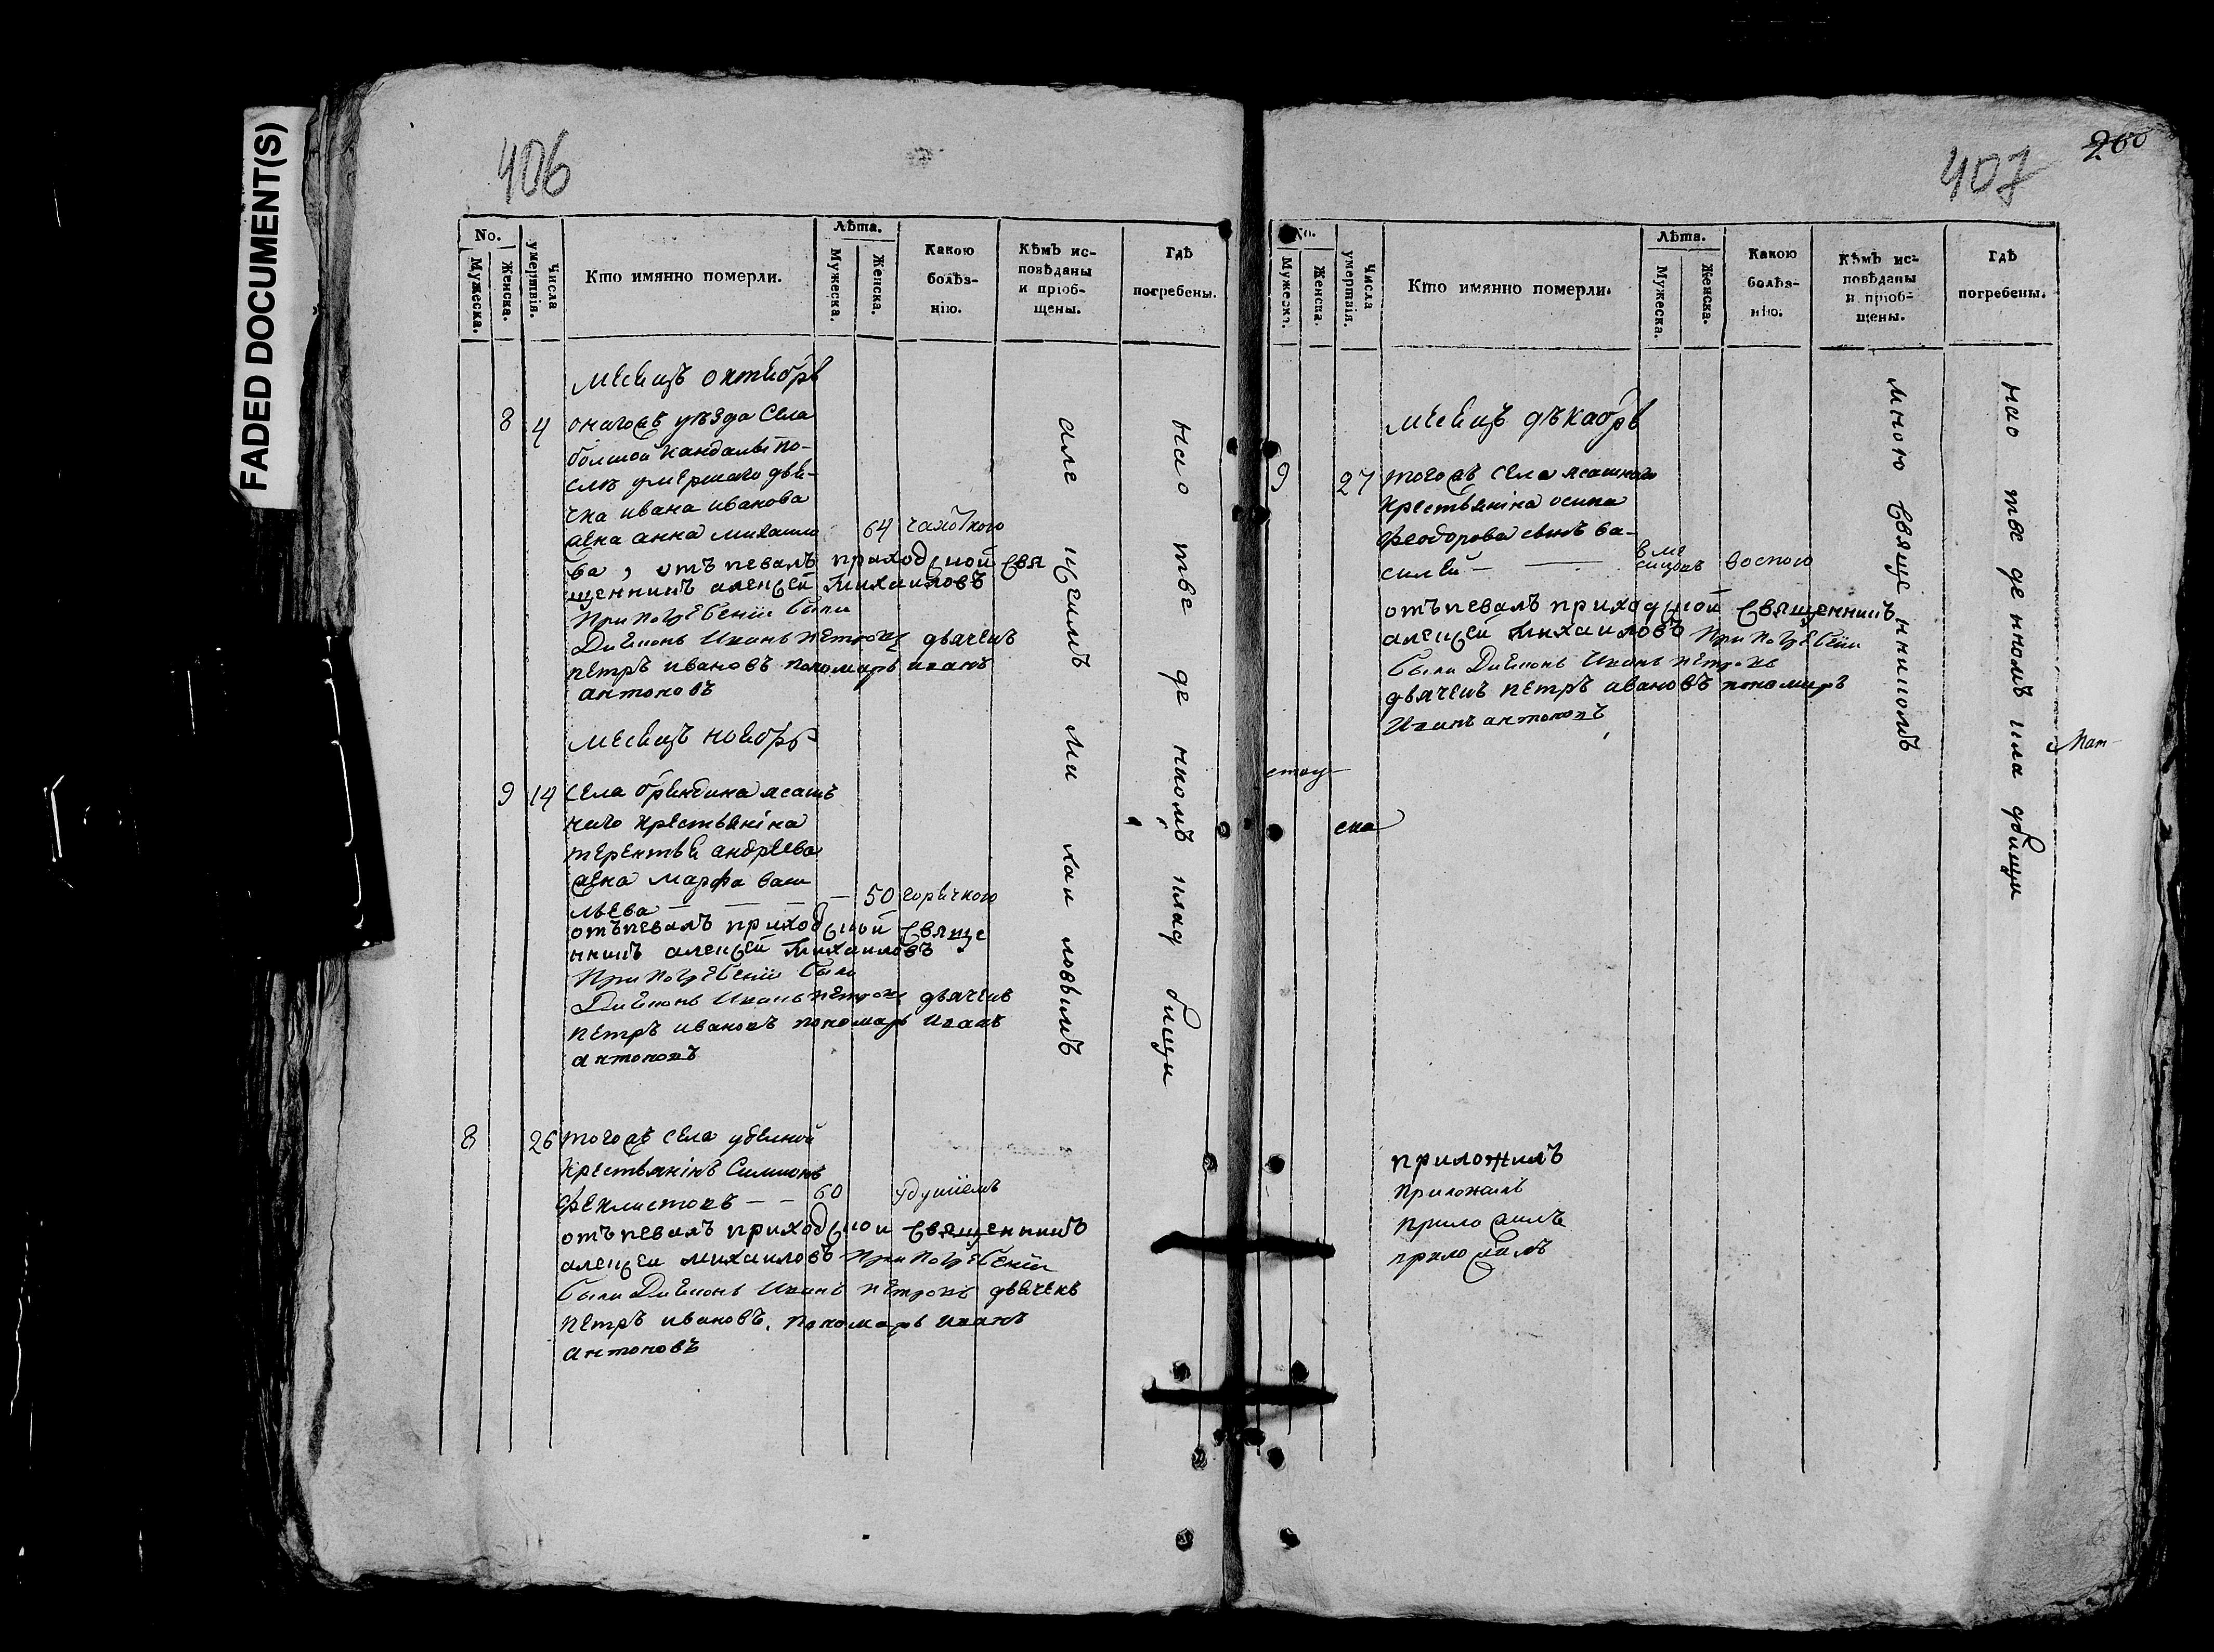 FADED DOCUMENT(S)
406
No.
Мужеска.
Женска.
Числа умертвія.
Кто имянно померли.
Лѣта.
Мужеска.
Женска.
Какою
болѣз-
нію.
Кѣмъ ис-
повѣданы
и пріоб-
щены.
Гдѣ
погребены.
месецъ октебрь
8 4 онагожъ уѣзда Села
болшой кандалы по-
слѣ умершаго дья-
чка ивана иванова
жена анна михаило 64 чахоткою
ва, отъ певалъ приходской Свя
щенникъ алексей михаиловъ
при погребеніи были
Диаконъ Иванъ петровъ дьячекъ
петръ ивановъ пономарь иванъ
антоновъ
месецъ ноебрь
9 14 села бряндина ясаш
наго крестьянина
терентья андреева
жена марфа васи
льева — — — — 50 горячкою
отъпевалъ приходской Свяще
нникъ алексей михаиловъ
при погребеніи были
Диаконъ Иванъ петровъ дьячекъ
петръ ивановъ пономарь иванъ
антоновъ
8 26 тогожъ села уделной
крестьянінъ Симионъ
феклистовъ — — 60 удушіемъ
отъпевалъ приходской Священникъ
алексеи михаиловъ при погребеніи
были Диаконъ Иванъ петровъ дьячекъ
петръ ивановъ. пономарь иванъ
антоновъ
але ксеимъ ми хаи ловымъ
на о тве де ниомъ клад бищи
407
260
No.
Мужеска.
Женска.
Числа умертвія.
Кто имянно померли.
Лѣта.
Мужеска.
Женска.
Какою
болѣз-
нію.
Кѣмъ ис-
повѣданы
и пріоб-
щены.
Гдѣ
погребены.
месецъ дѣкабрь
9 27 тогожъ села ясашнаго
крестьяніна осипа
феодорова сынъ ва-
силей — — 8 ме
сицовъ воспою
отъпевалъ приходской Священникъ
алексей михаиловъ при погребеніи
были Диаконъ Иванъ петровъ
дьячекъ петръ ивановъ пономарь
Иванъ антоновъ
мною Свяще нникомъ
на о тве де нномъ кла дбищи
приложилъ
приложилъ
приложилъ
приложилъ